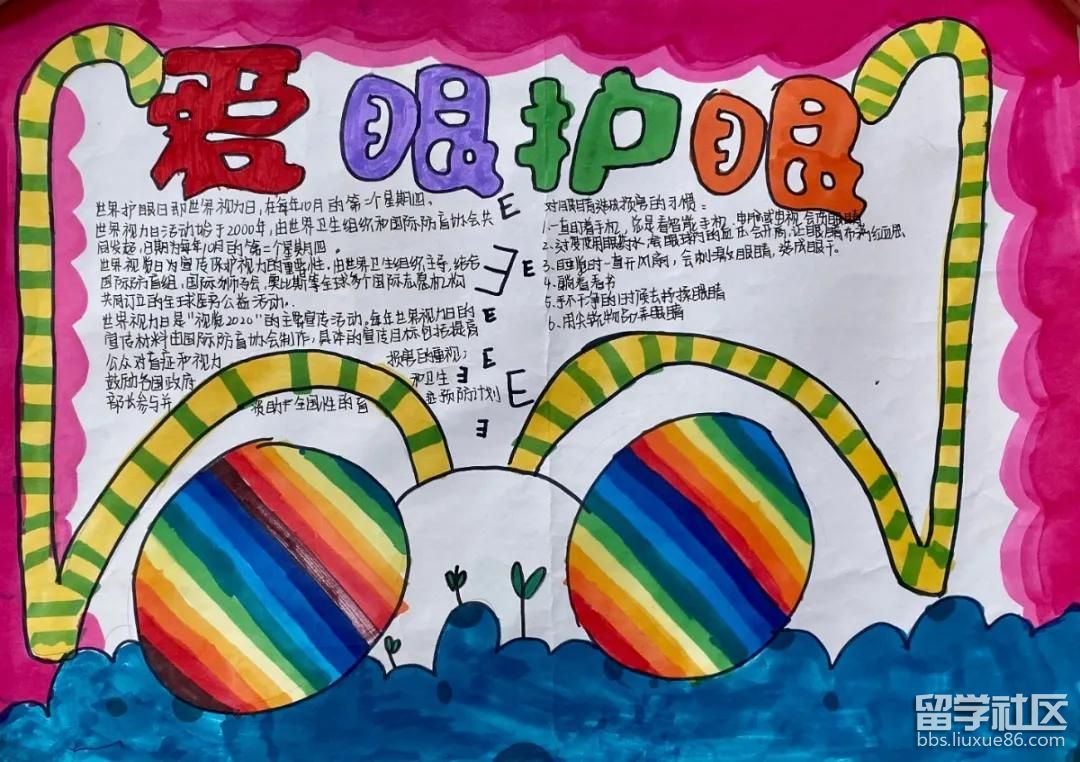 爱眼护眼
世界护眼日即世界视力日,在每年10月的第二个星期四。
世界视力日活动始于2000年,由世界卫生组织和国际防盲协会共
同发起,日期为每年10月的第二个星期四。
世界视觉日为宣传保护视力的重要性,由世界卫生组织主导,结合
国际防盲组,国际狮子会,奥比斯等全球多个国际志愿机
共同订立的全球医务公益活动.
世界视力日是“视觉2020”的主要宣传活动。每年世界视力日的
宣传材料由国际防盲协会制作,具体的宣传目标包括提高
公众对盲症和视力 损害的重视;
鼓励各国政府 和卫生
部长参与并 资助 全国性的盲 症预防计划
E
E
E
E
E
E
E
E
对眼睛造成损害的习惯:
1.一直盯着手机,
2.过度使用眼药水,
3.睡觉时一直开风扇,会刺激眼睛,造成眼干。
4.躺着看书
5.手不干净的时候去揉揉眼睛
6.用尖锐物品弄眼睛
留学社区
bbs.liuxue86.com